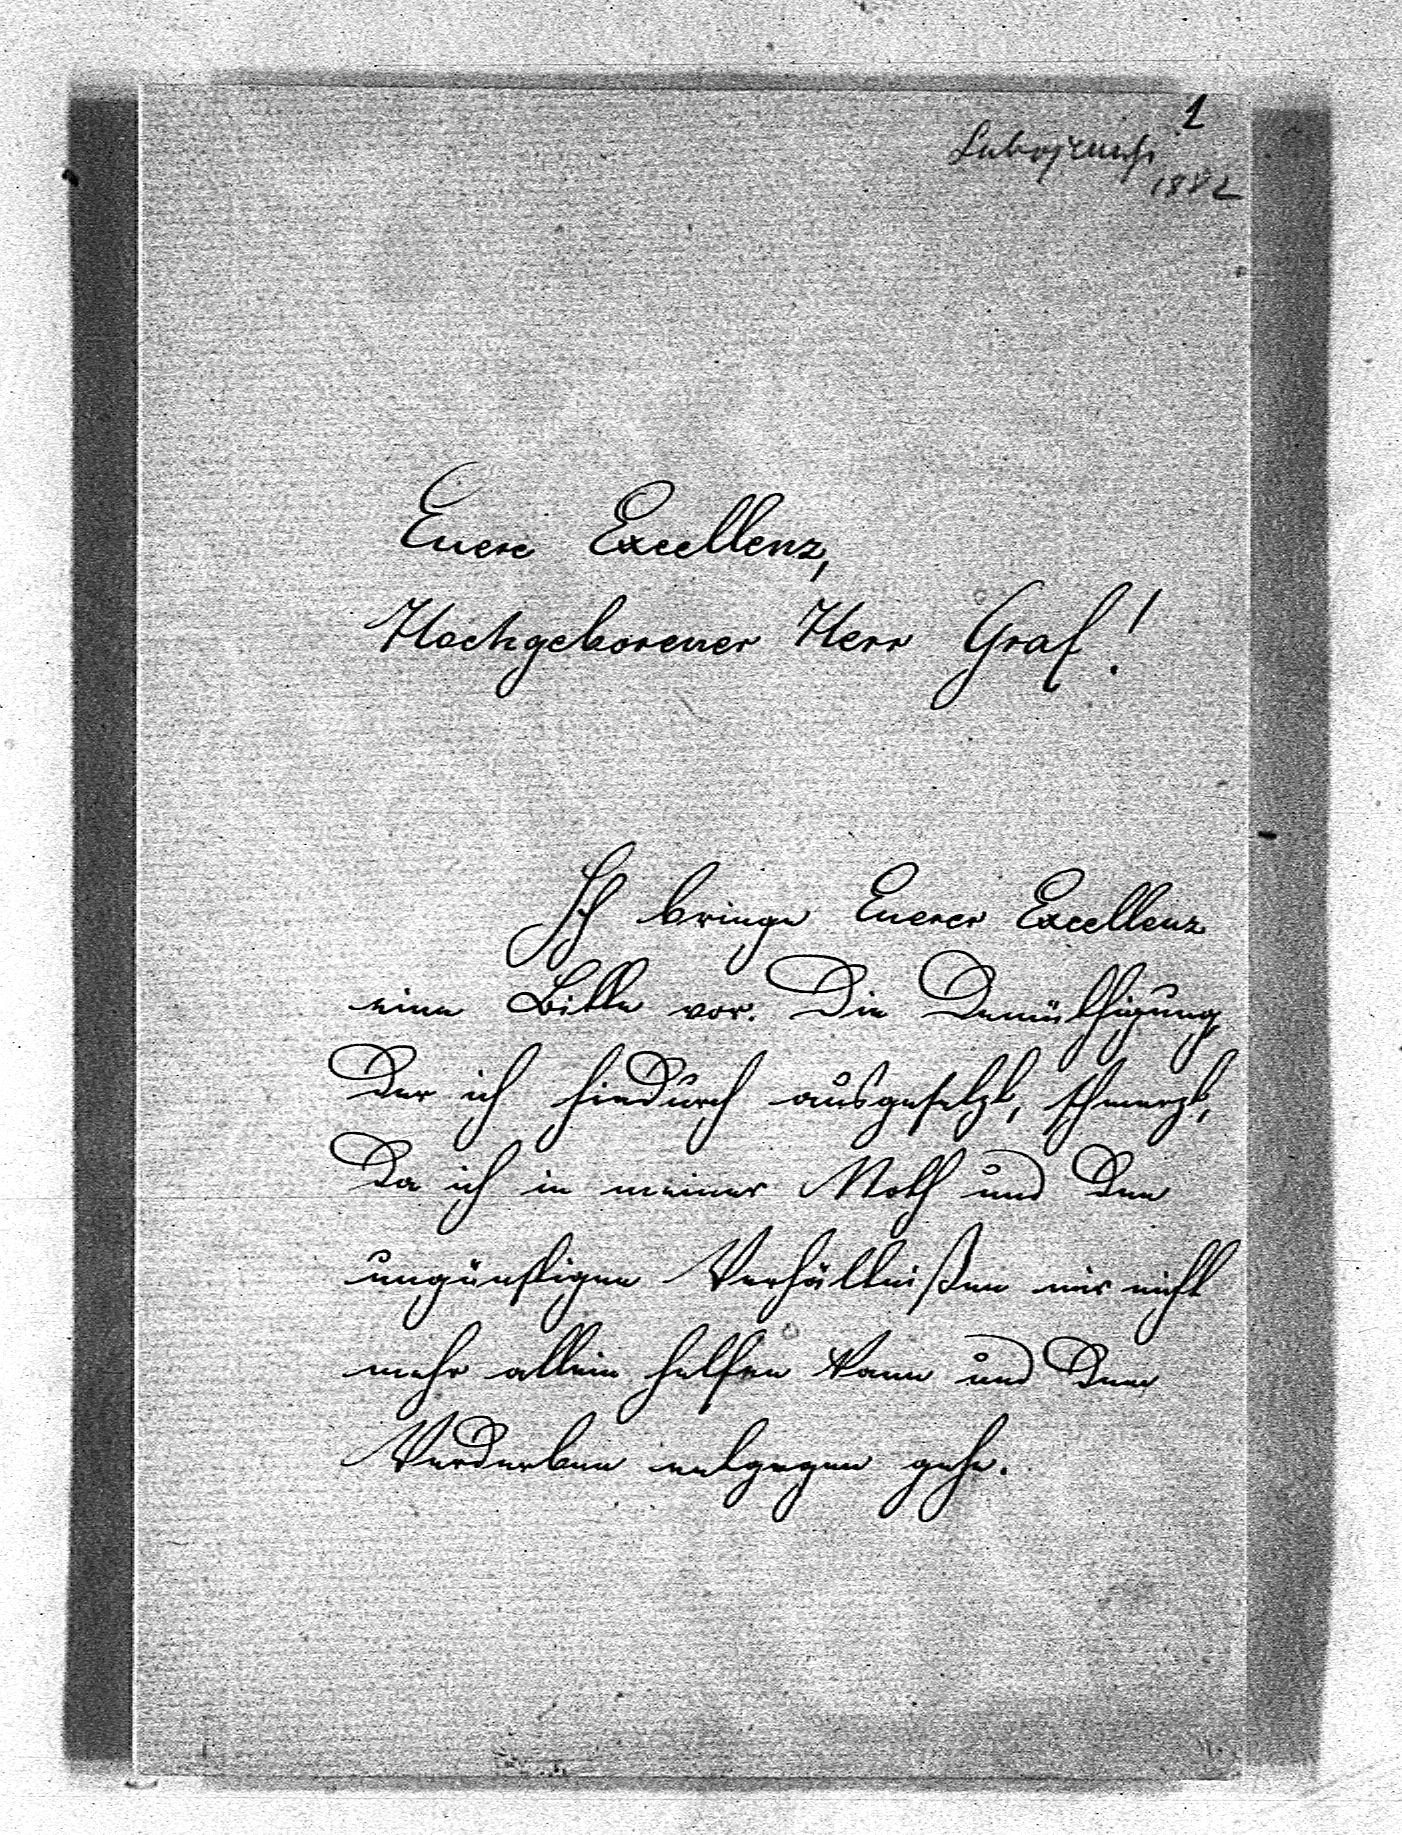 1
1882
Euere Excellenz,
Hochgeborener Herr Graf!
Ich bringe Euerer Excellenz
eine Bitte vor. Die Demüthigung
der ich hiedurch ausgesetzt, schmerzt,
da ich in meiner Noth und den
ungünstigen Verhältnißen mir nicht
mehr allein helfen kann und dem
Verderben entgegen gehe.